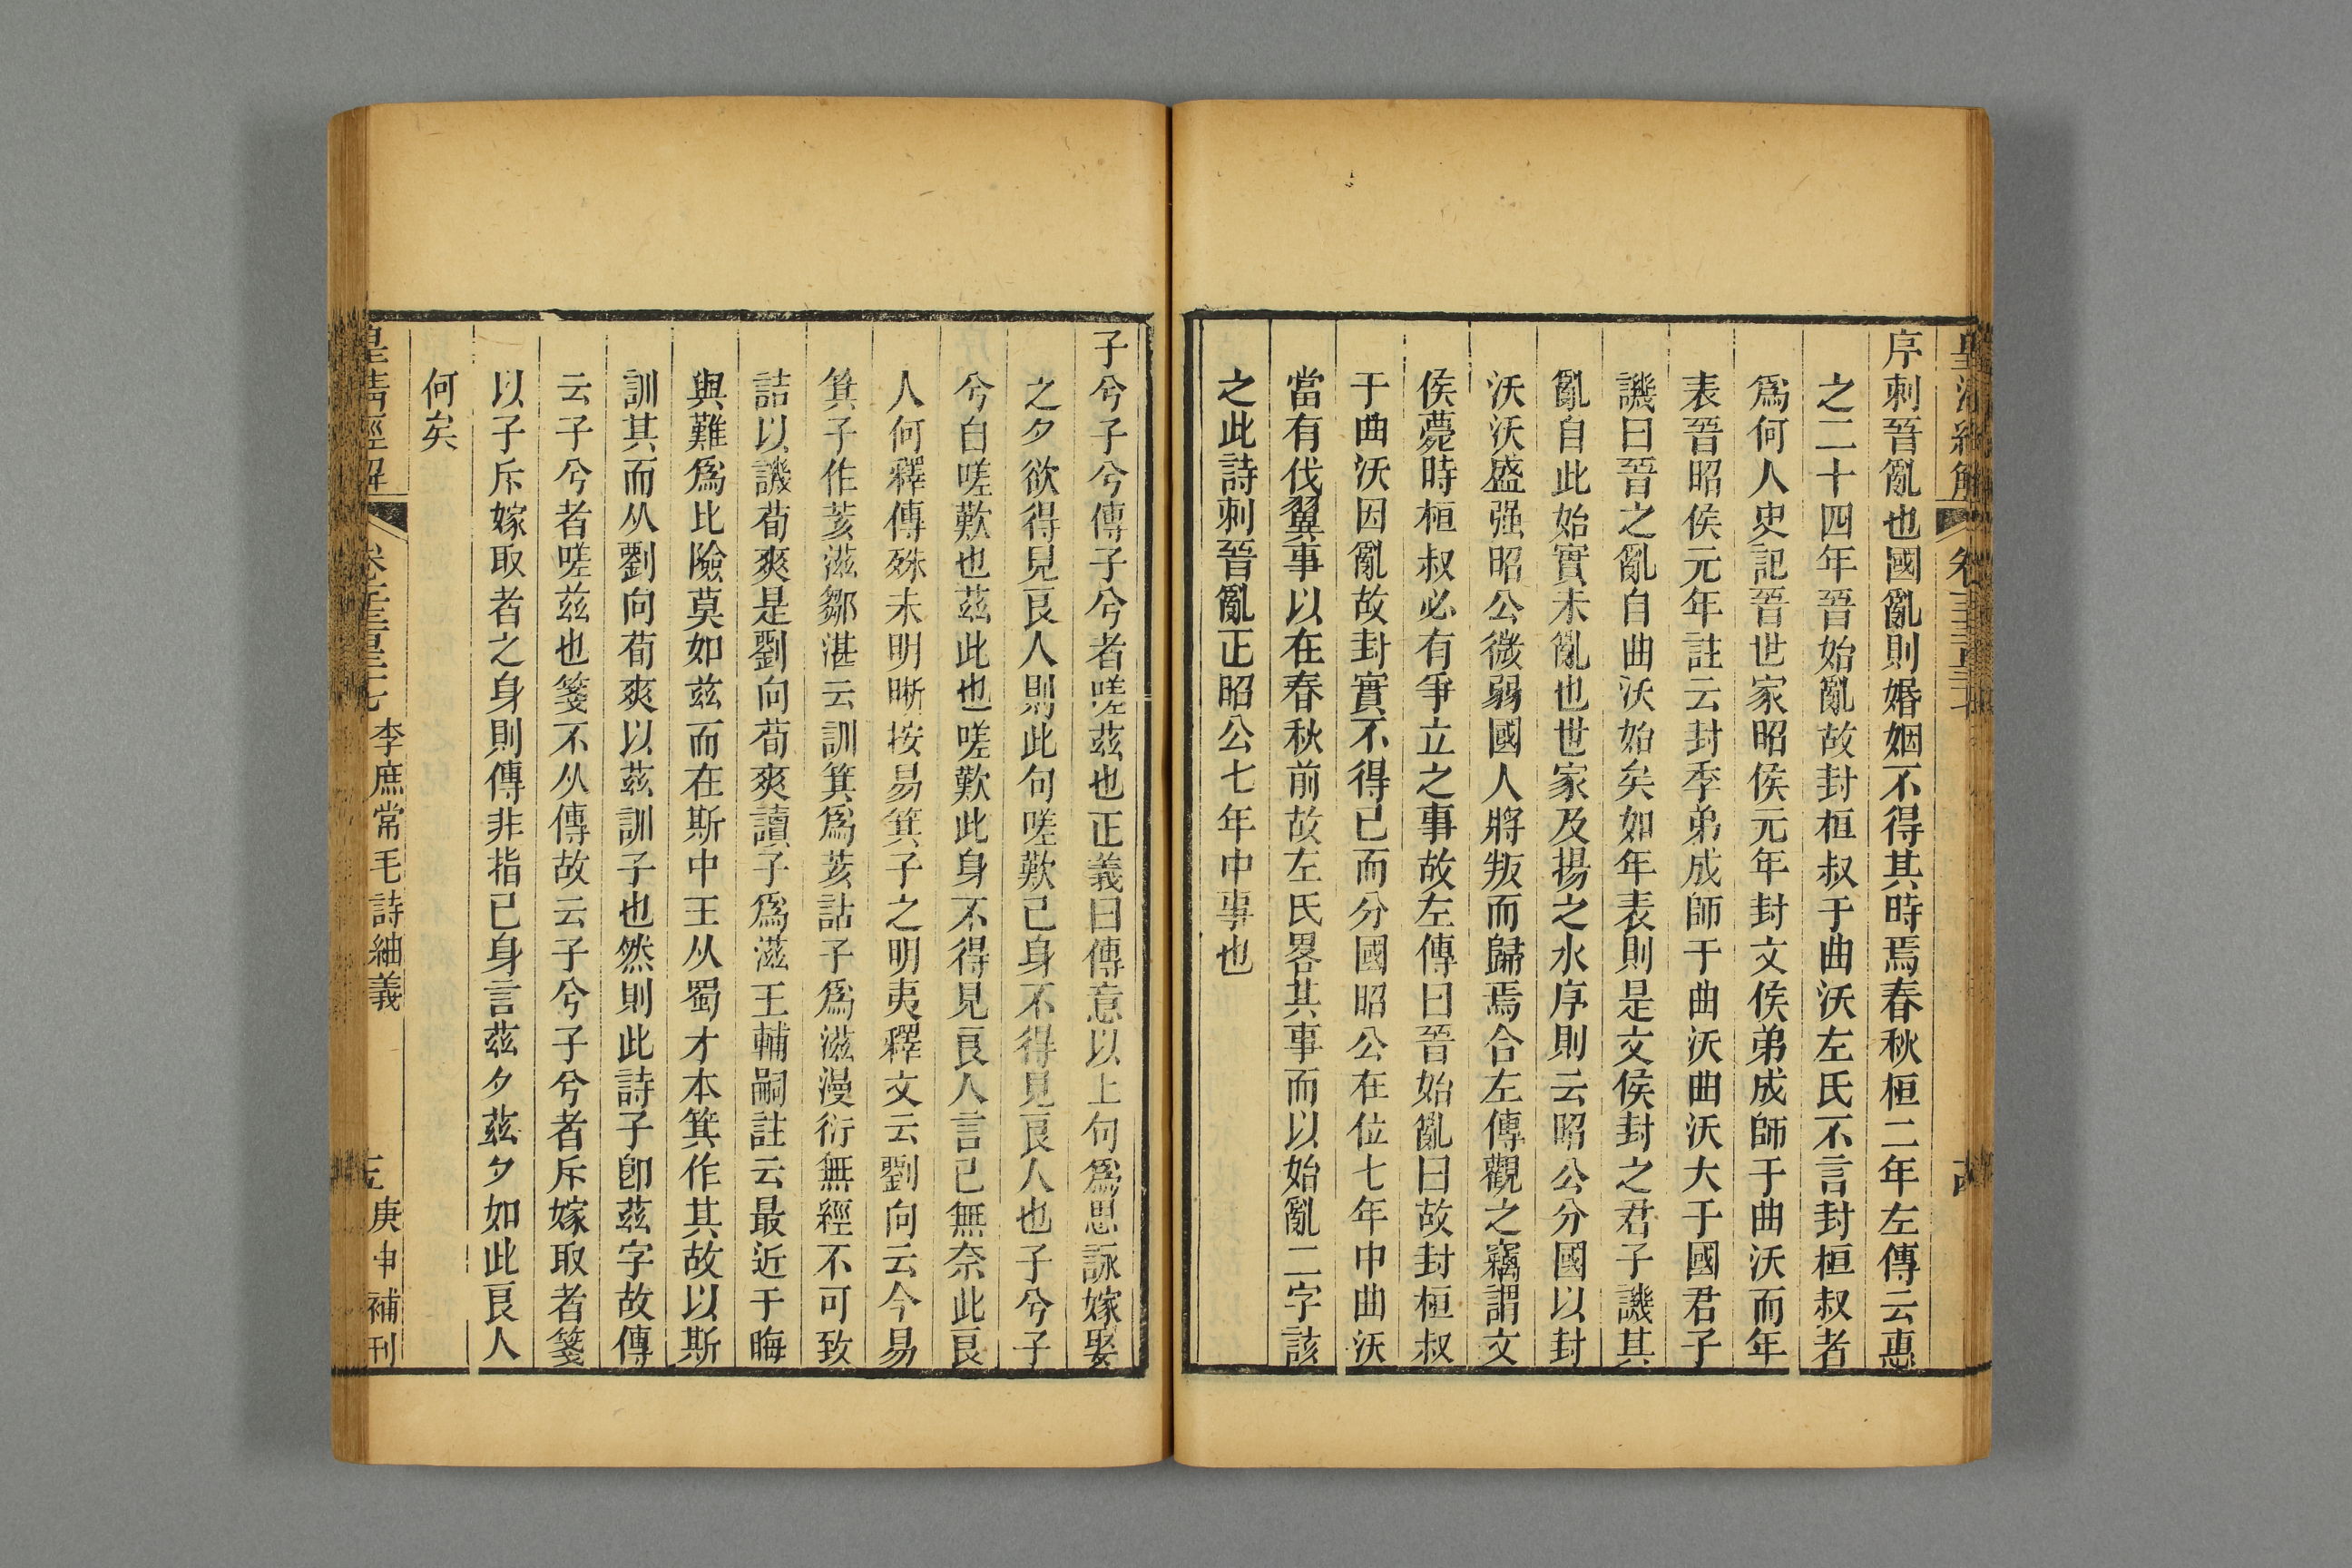 序刺晉亂也國亂則婚姻不得其時焉春秋桓二年左傳云惠
之二十四年晉始亂故封桓叔于曲沃左氏不言封桓叔者
爲何人史記晉世家昭侯元年封文侯弟成師于曲沃而年
表晉昭侯元年註云封季弟成師于曲沃曲沃大于國君子
譏曰晉之亂自曲沃始矣如年表則是文侯封之君子譏其
亂自此始實未亂也世家及揚之水序則云昭公分國以封
沃沃盛强昭公微弱國人將叛而歸焉合左傳觀之竊謂文
侯薨時桓叔必有爭立之事故左傳曰晉始亂曰故封桓叔
于曲沃因亂故封實不得已而分國昭公在位七年中曲沃
當有伐翼事以在春秋前故左氏畧其事而以始亂二字該
之此詩刺晉亂正昭公七年中事也
子兮子兮傳子兮者嗟茲也正義曰傳意以上句爲思詠嫁娶
之夕欲得見良人則此句嗟歎己身不得見良人也子兮子
兮自嗟歎也茲此也嗟歎此身不得見良人言已無奈此良
人何釋傳殊未明晰按易箕子之明夷釋文云劉向云今易
箕子作荄滋鄒湛云訓箕爲荄詁子爲滋漫衍無經不可致
詰以譏荀爽是劉向荀爽讀子爲滋王輔嗣註云最近于晦
與難爲比險莫如茲而在斯中王从蜀才本箕作其故以斯
訓其而从劉向荀爽以茲訓子也然則此詩子卽茲字故傳
云子兮者嗟茲也箋不从傳故云子兮子兮者斥嫁取者箋
以子斥嫁取者之身則傳非指已身言茲夕茲夕如此良人
何矣
皇清經解
李庶常毛詩紬義
庚申補刊